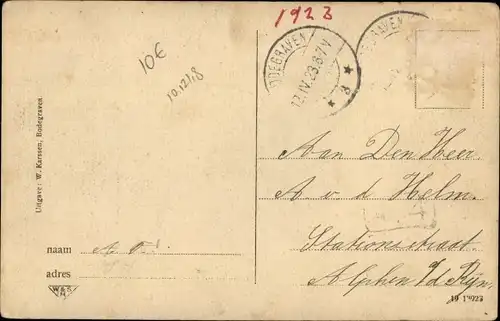 1923
10€
10.12.18
BODEGRAVEN
12.IV.23.8-7V
* 3 *
Uitgave: W. Karssen, Bodegraven.
Aan Den Heer
A v d Helm.
Stationsstraat
Alphen ʳ/d Rijn
naam A
adres
W&S
19 1923